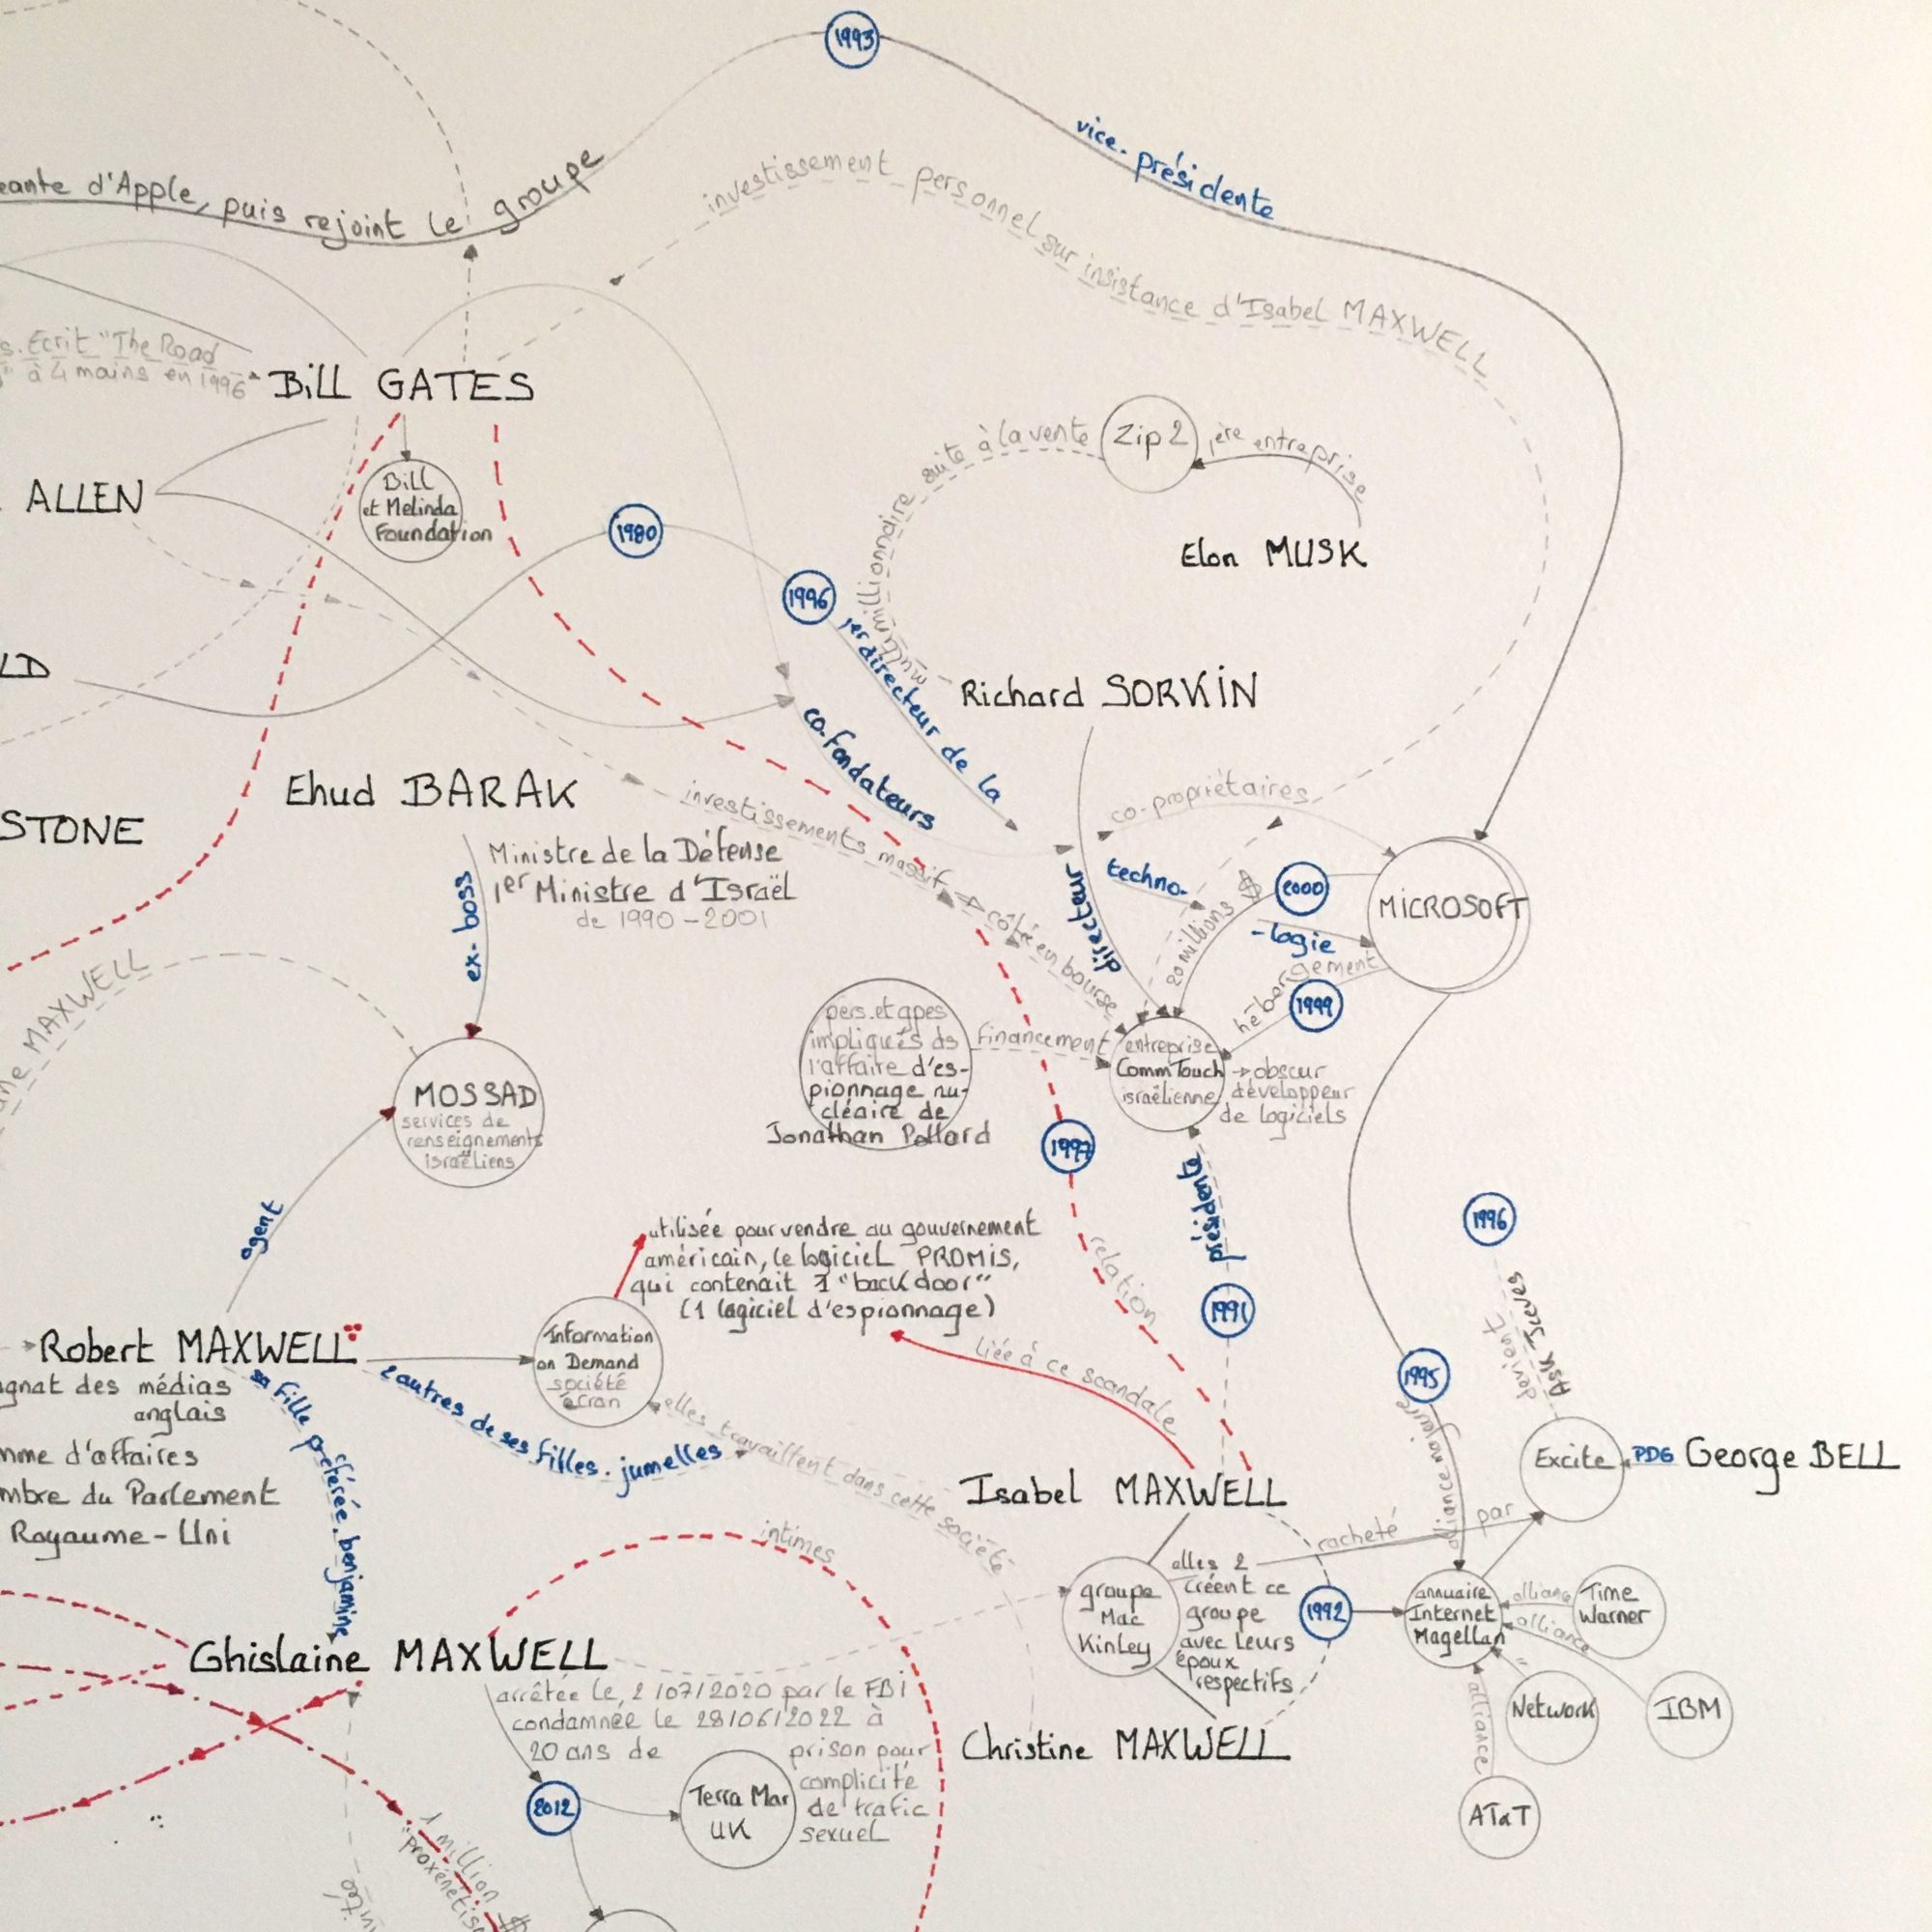 1993
vice-présidente
eante d'Apple, puis rejoint le groupe
investissement personnel sur insistance d'Isabel MAXWELL
s. Ecrit "The Road
à 4 mains en 1996
Bill GATES
Bill
et Melinda
Foundation
ALLEN
1980
1996
1er directeur de la
multimillionnaire suite à la vente
Zip 2
1ère entreprise
Elon MUSK
LD
Richard SORKIN
co-fondateurs
Ehud BARAK
Ministre de la Défense
1er Ministre d'Israël
de 1990-2001
ex-boss
STONE
investissements massif
côté en bourse
co-propriétaires
directeur
techno-
-logie
20 millions $
2000
MICROSOFT
hébergement
1999
ne MAXWELL
MOSSAD
services de
renseignements
israëliens
pers. et gpes
impliqués ds
l'affaire d'es-
pionnage nu-
cléaire de
Jonathan Pollard
financement
entreprise
CommTouch
israélienne
→ obscur
développeur
de logiciels
1997
relation
présidente
1991
agent
utilisée pour vendre au gouvernement
américain, le logiciel PROMIS,
qui contenait 1 "back door"
(1 logiciel d'espionnage)
liée à ce scandale
Information
on Demand
société
écran
Robert MAXWELL
agnat des médias
anglais
mme d'affaires
mbre du Parlement
Royaume-Uni
2 autres de ses filles. jumelles
elles travaillent dans cette société
sa fille préférée. benjamine
1996
devient
Ask Jeeves
1995
alliance majeure
Excite
PDG
George BELL
Isabel MAXWELL
racheté par
groupe
Mac
Kinley
elles 2
créent ce
groupe
avec leurs
époux
respectifs
1992
annuaire
Internet
Magellan
alliance
Time
Warner
alliance
"
Network
IBM
alliance
AT&T
intimes
Ghislaine MAXWELL
arrêtée le, 2/07/2020 par le FBI
condamnée le 28/06/2022 à
20 ans de prison pour
complicité
de trafic
sexuel
Christine MAXWELL
2012
Terra Mar
UK
1 million $
"proxénétis